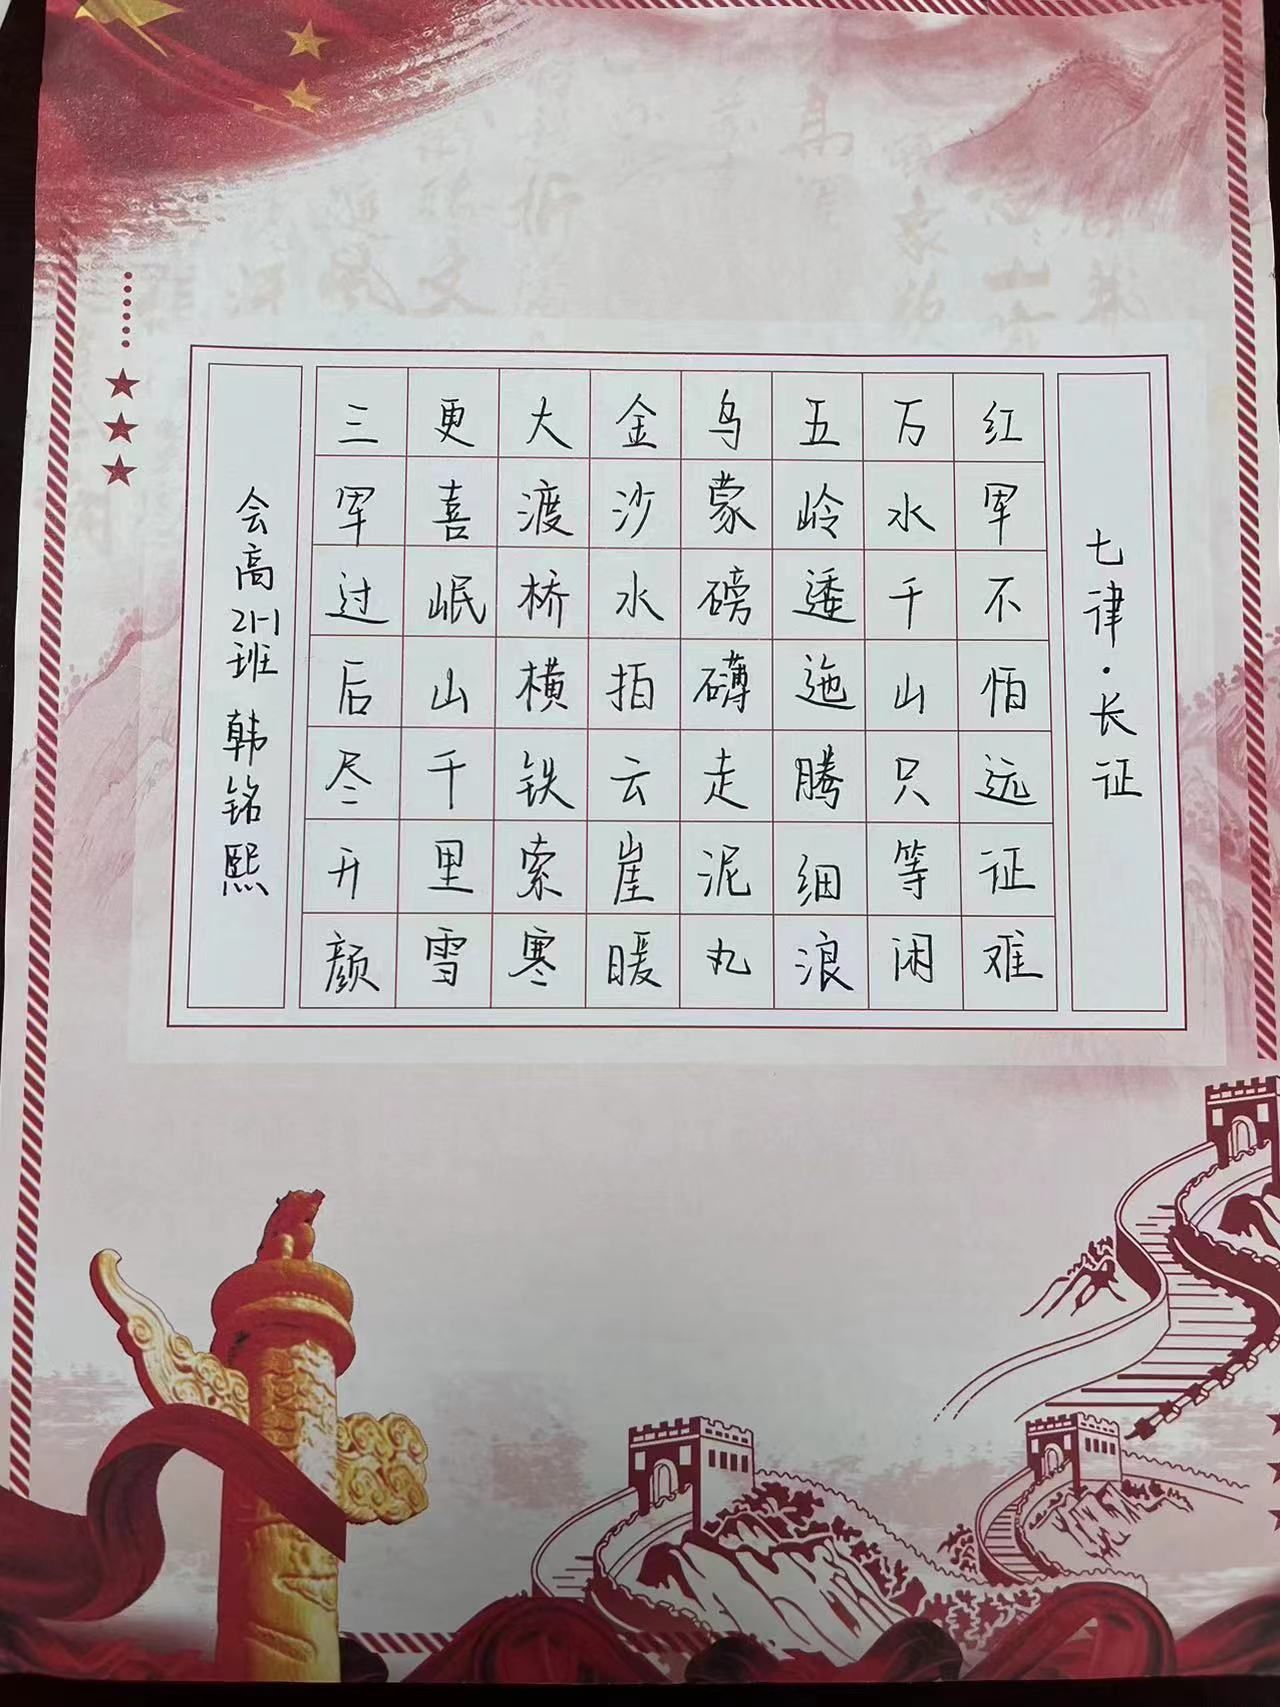 七律·长征
红军不怕远征难
万水千山只等闲
五岭逶迤腾细浪
乌蒙磅礴走泥丸
金沙水拍云崖暖
大渡桥横铁索寒
更喜岷山千里雪
三军过后尽开颜
会高21-1班 韩铭熙